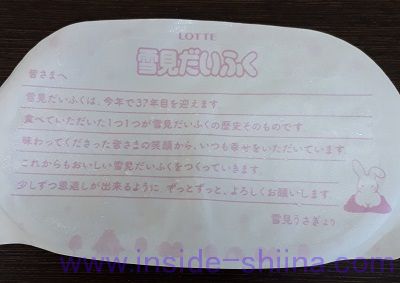 LOTTE
雪見だいふく
皆さまへ
雪見だいふくは、今年で37年目を迎えます。
食べていただいた1つ1つが雪見だいふくの歴史そのものです。
味わってくださった皆さまの笑顔から、いつも幸せをいただいています。
これからもおいしい雪見だいふくをつくっていきます。
少しずつ恩返しが出来るように、ずっとずっと、よろしくお願いします。
雪見うさぎより
www.inside-shiina.com